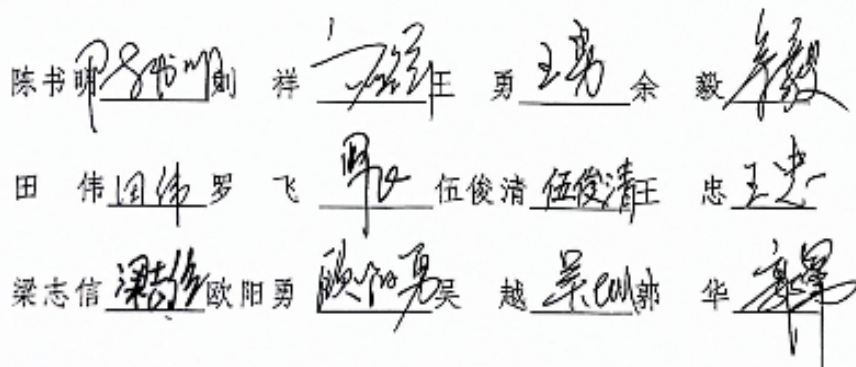 陈书明 陈书明 祥 王勇 王勇 余毅 余毅
田伟 田伟 罗飞 罗飞 伍俊清 伍俊清 王忠 王忠
梁志信 梁志信 欧阳勇 欧阳勇 吴越 吴越 郭华 郭华